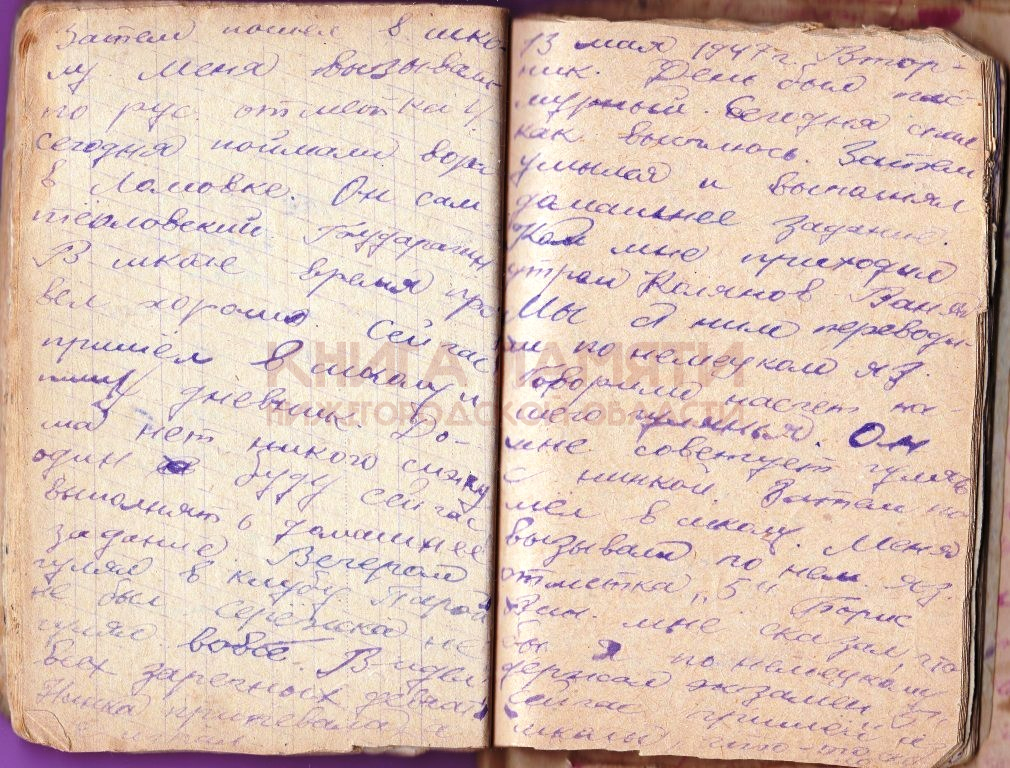 Затем пошел в шко-
лу меня вызывали
по рус. отметка 4,
сегодня поймали вора
в Ломовке. Он сам
В школе время про
вел хорошо. Сейчас
пришёл в школу и
пишу дневник До-
ма нет никого сижу
один буду сейчас
выполнять домашнее
задание. Вечером
гулял в клубу
не был Серёжка не
гулял вобще. Видел
всех заречных девчат
Нинка
13 мая 1947 г. Втор-
ник. День был пас-
мурный. Сегодня спал
как выспалось. Затем
умылся и выполнял
домашнее задание.
Ко мне приходил
утром Колянов Ваня
Мы с ним переводи-
ли по немецкому яз.
Говорили насчет на-
шего гулянья. Он
мне советует гулять
с нинкой. Затем по
шёл в школу. Меня
вызывали по нем. яз.
отметка „5" Борис
мне сказал, что
бы я по немецкому
держал экзамен
Сейчас пришёл из
школы что-то
КНИГА ПАМЯТИ
НИЖЕГОРОДСКОЙ ОБЛАСТИ